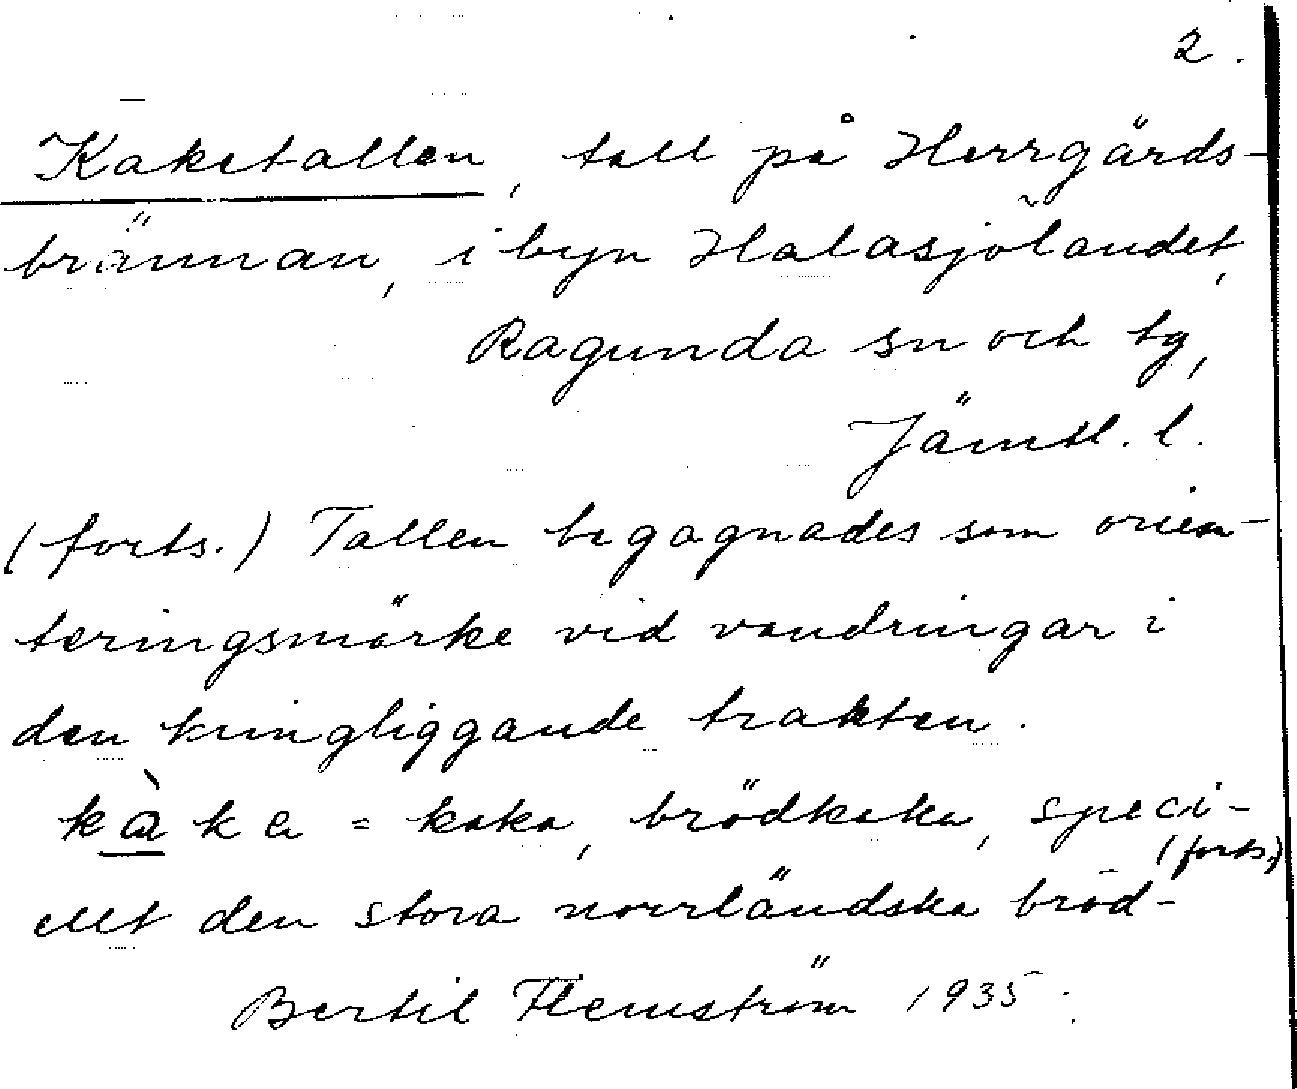 2.
Kaketallen, tall på Herrgårds-
brännan, i byn Halasjölandet,
Ragunda sn och tg,
Jämtl. l.
(forts.) Tallen begagnades som orien-
teringsmärke vid vandringar i
den kringliggande trakten.
kàke = kaka, brödkaka, speci-
(forts.)
ellt den stora norrländska bröd-
Bertil Flemström 1935.